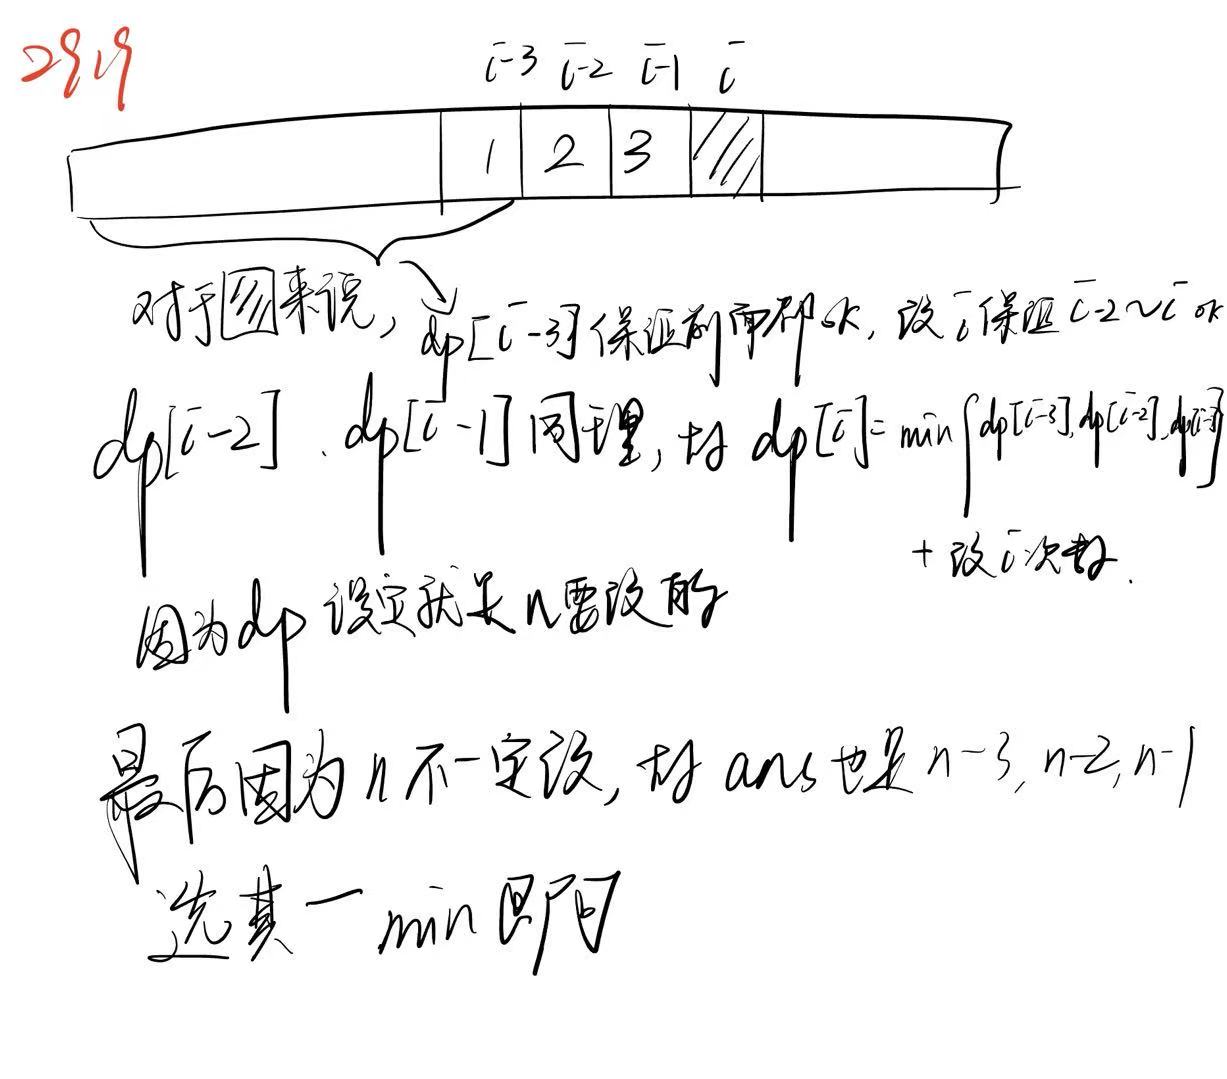 2919
i-3 i-2 i-1 i
1 2 3
对于 来说, dp[i-3]保证前面都ok, 改i保证i-2~i ok
dp[i-2]、dp[i-1]同理, 故 dp[i]=min{dp[i-3],dp[i-2],dp[i-1]}
+改i次数.
因为dp 设定就是n要改的
最后因为n不一定改, 故 ans也是n-3, n-2, n-1
选其一min即可